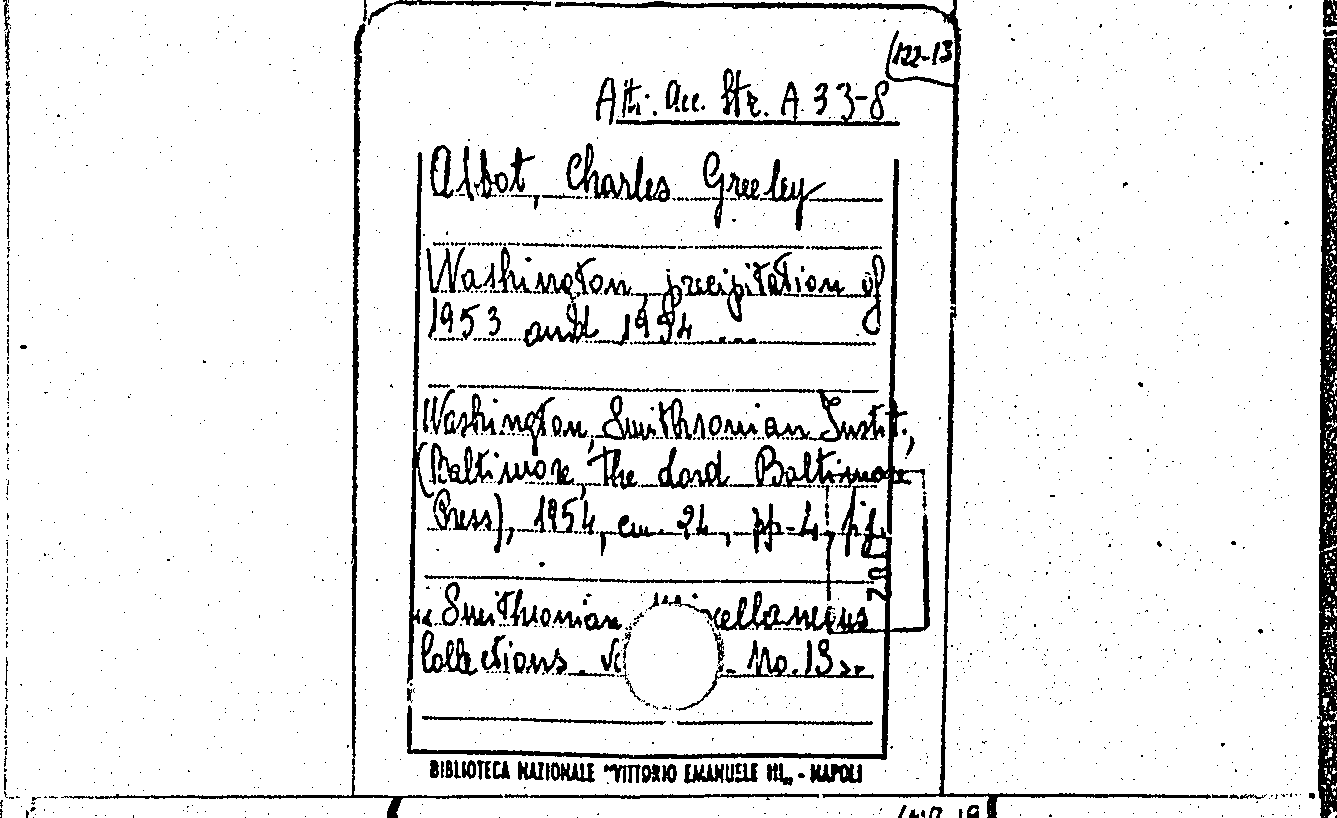 (122-13
Atti. Acc. Str. A 33-8
Abbot, Charles Greeley
Washington precipitation of
1953 and 1954 ...
Washington, Smithsonian Instit.,
(Baltimore, the Lord Baltimore
Press), 1954, cm. 24, pp-4, fig.
Smithsonian Miscellaneous
Collections. No. 13»
BIBLIOTECA NAZIONALE "VITTORIO EMANUELE III„ - NAPOLI